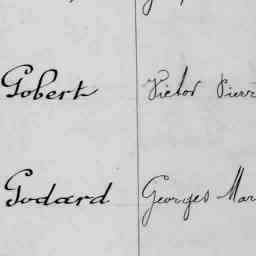 Gobert Victor Pierr
Godard Georges Mar